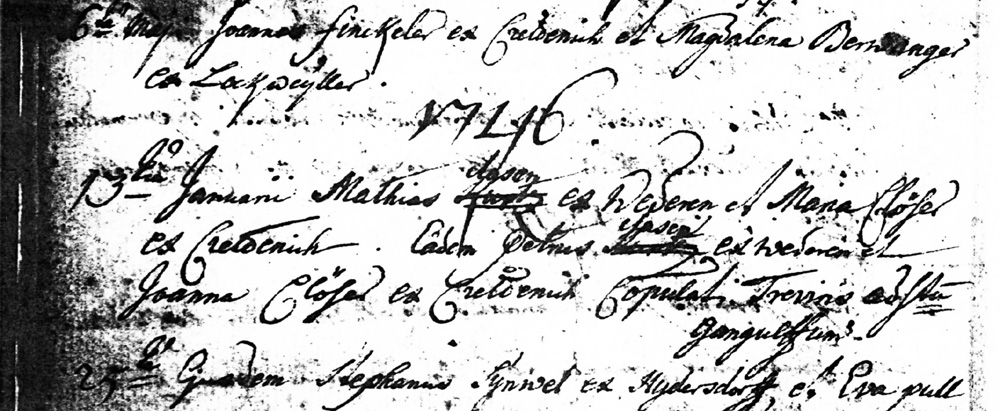 6ta Maji Joannes Finckeler ex Crettenich et Magdalena Berwanger
ex Lockweyller.
1746
13tia Januarii Mathias clasen ex Wederen et Maria Clöser
ex Crettenich. Eadem Petrus clasen ex wederen et
Joanna Clöser ex Crettenich Copulati Treviris ad Stum
Gangulffum.
25ta Ejusdem Stephanus Synwel ex Nydersdorff, et Eva pull